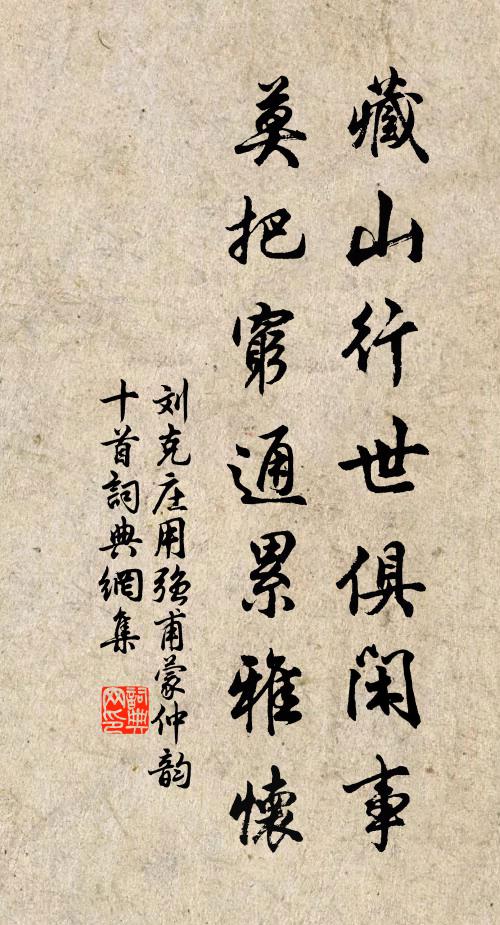 藏山行世俱闲事
莫把窮通累雅懷
刘克庄用强甫蒙仲韵
十首詞典網集
詞典网印